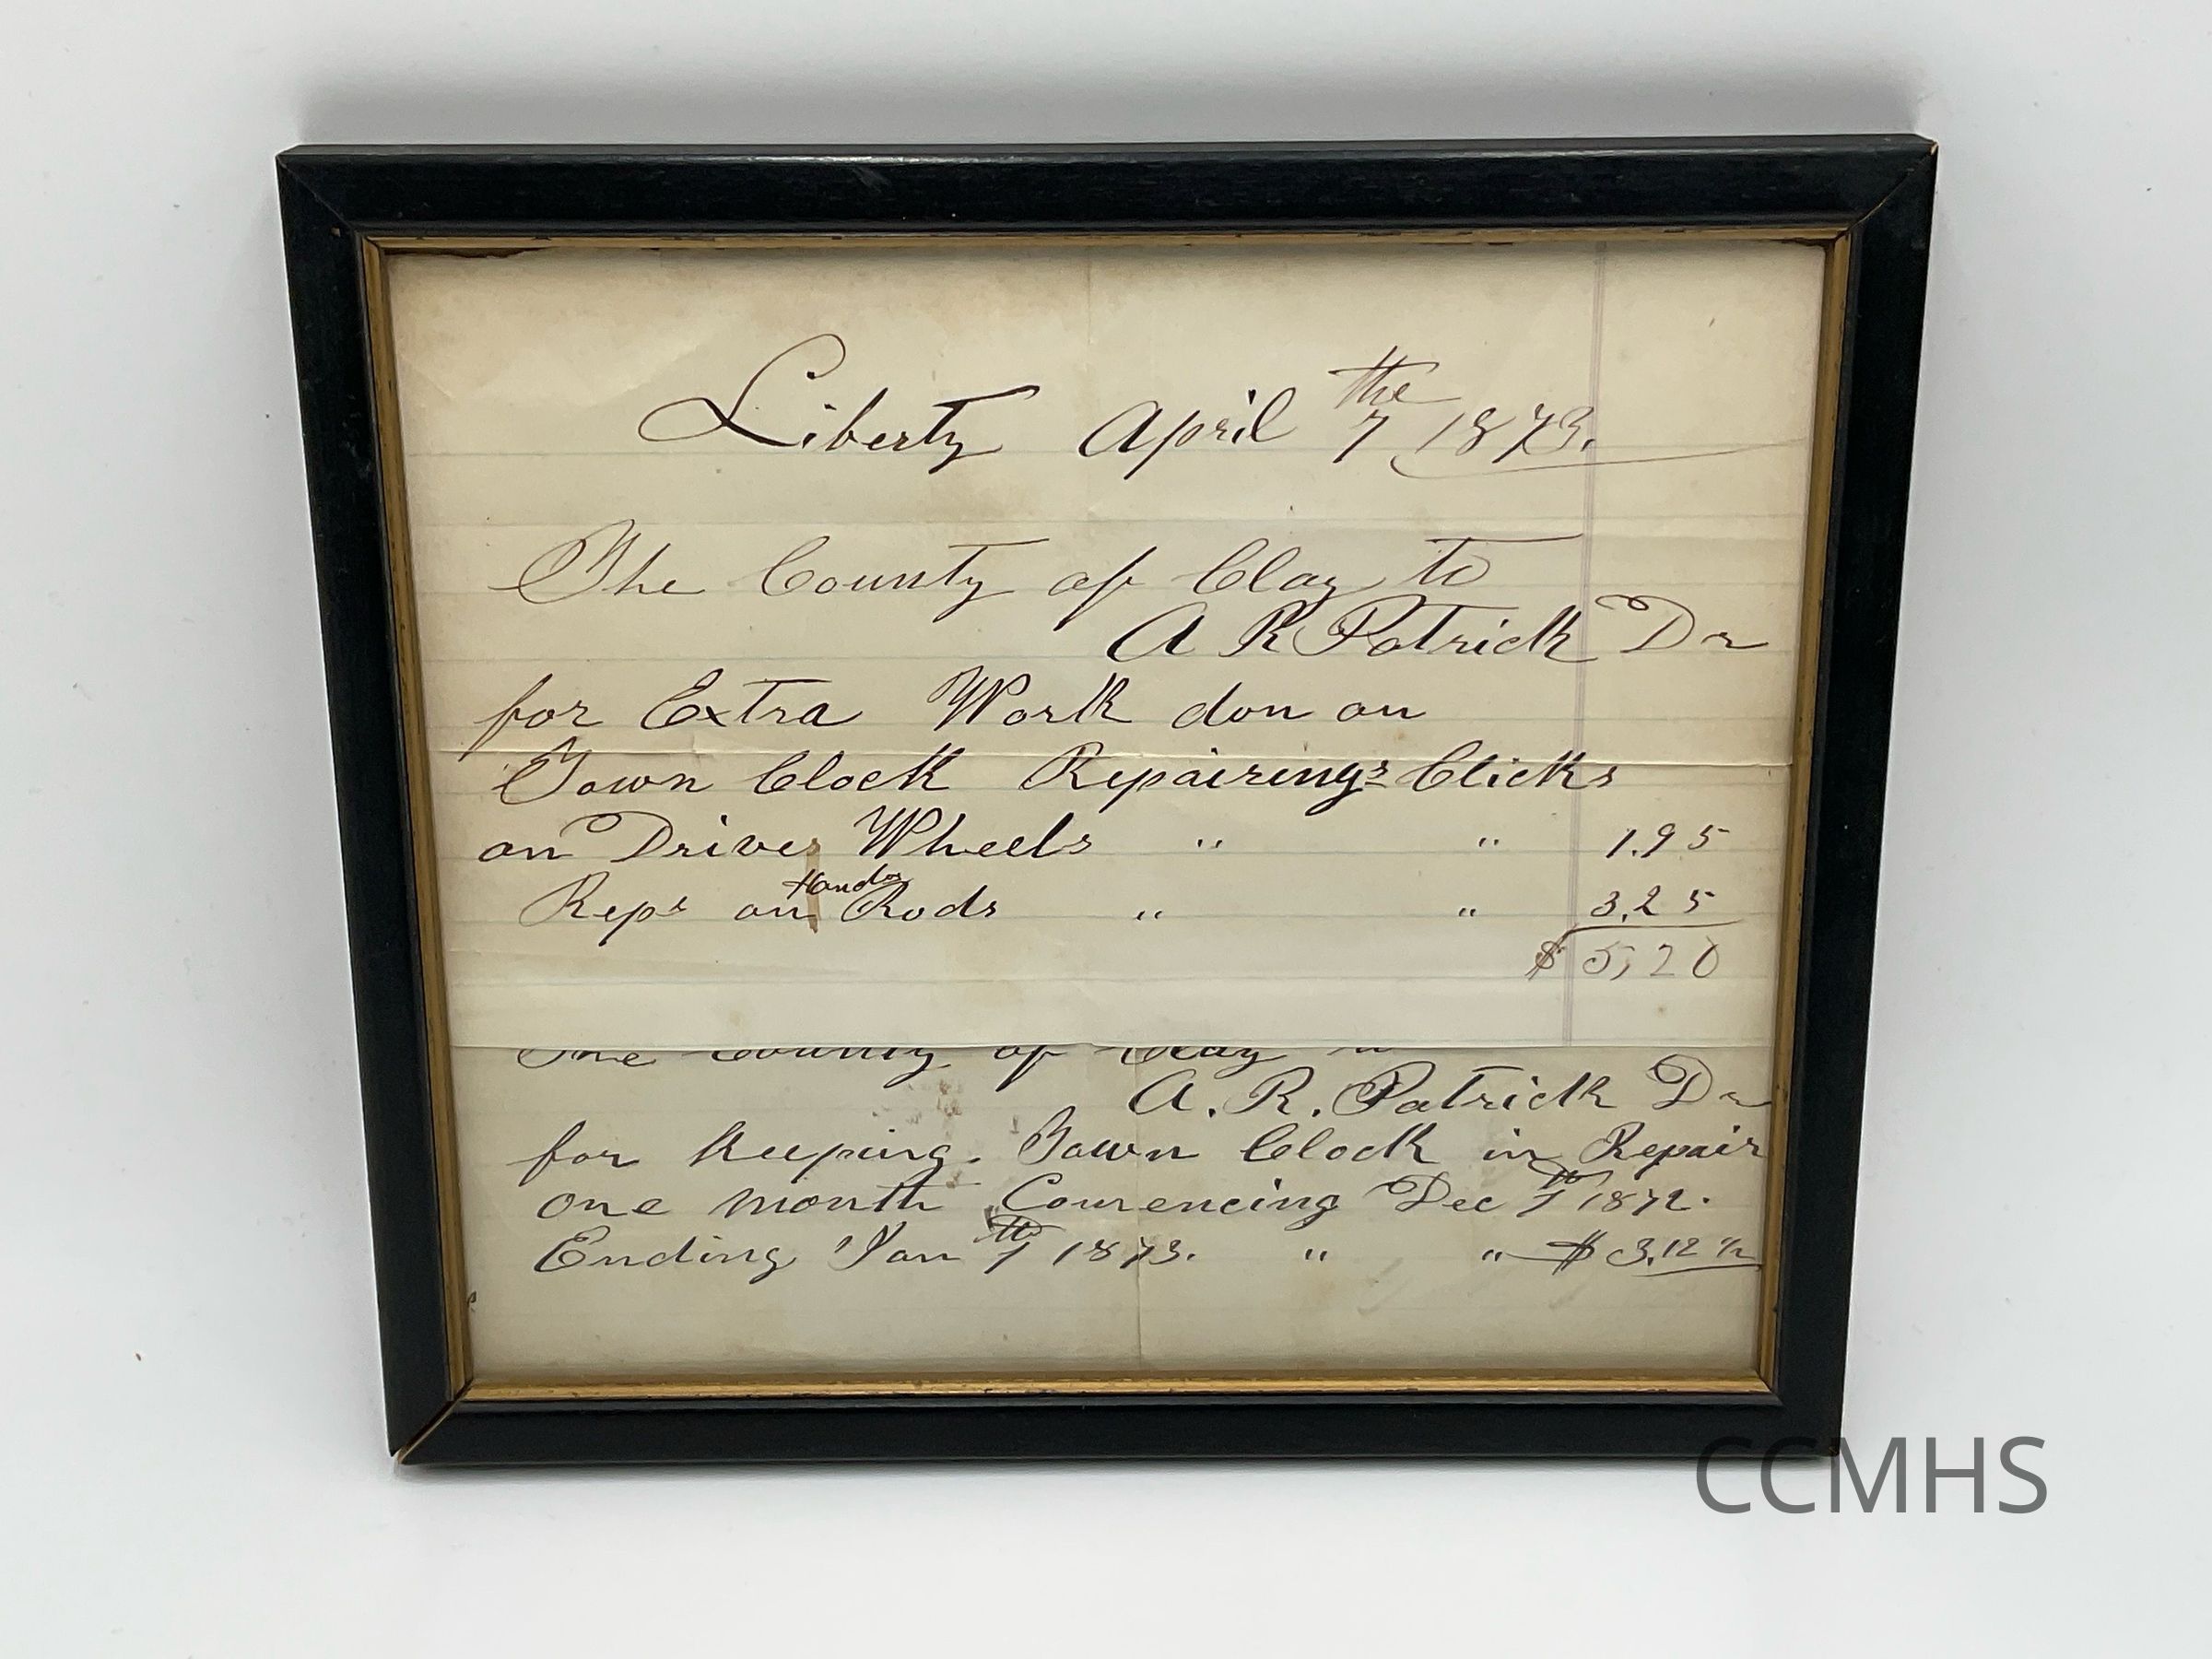 Liberty April 7 the 1873.
The County of Clay to
A R Patrick Dr
for Extra Work don on
Town Clock Repairings Clicks
on Drive Wheels " " 1.95
Reps on Hands Rods " " 3.25
$ 5,20
The County of Clay to
A. R. Patrick Dr
for Keeping. Town Clock in Repair
one month Comencing Dec 7th 1872.
Ending Jan 7th 1873. " " $ 3.12 1/2
CCMHS